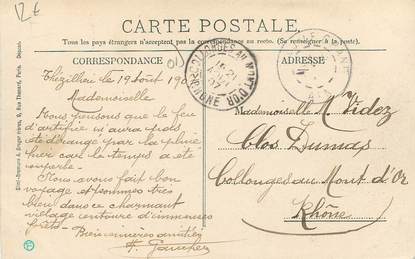 12€
CARTE POSTALE
Tous les pays étrangers n'acceptent pas la correspondance au recto. (Se renseigner à la poste).
CORRESPONDANCE
ADRESSE
Thézillieu le 19 Août 190
Mademoiselle
Nous pensons que le feu
d'artifice n'aura pas
été dérangé par la pluie
hier car le temps a été
superbe.
Nous avons fait bon
voyage et sommes très
bien dans ce charmant
village entouré d'immenses
forêts
amitiés
COLLONGES AU MONT D'OR
RHONE
07
Mademoiselle M. Videz
Clos Dumas
Collonges au Mont d'Or
Rhône